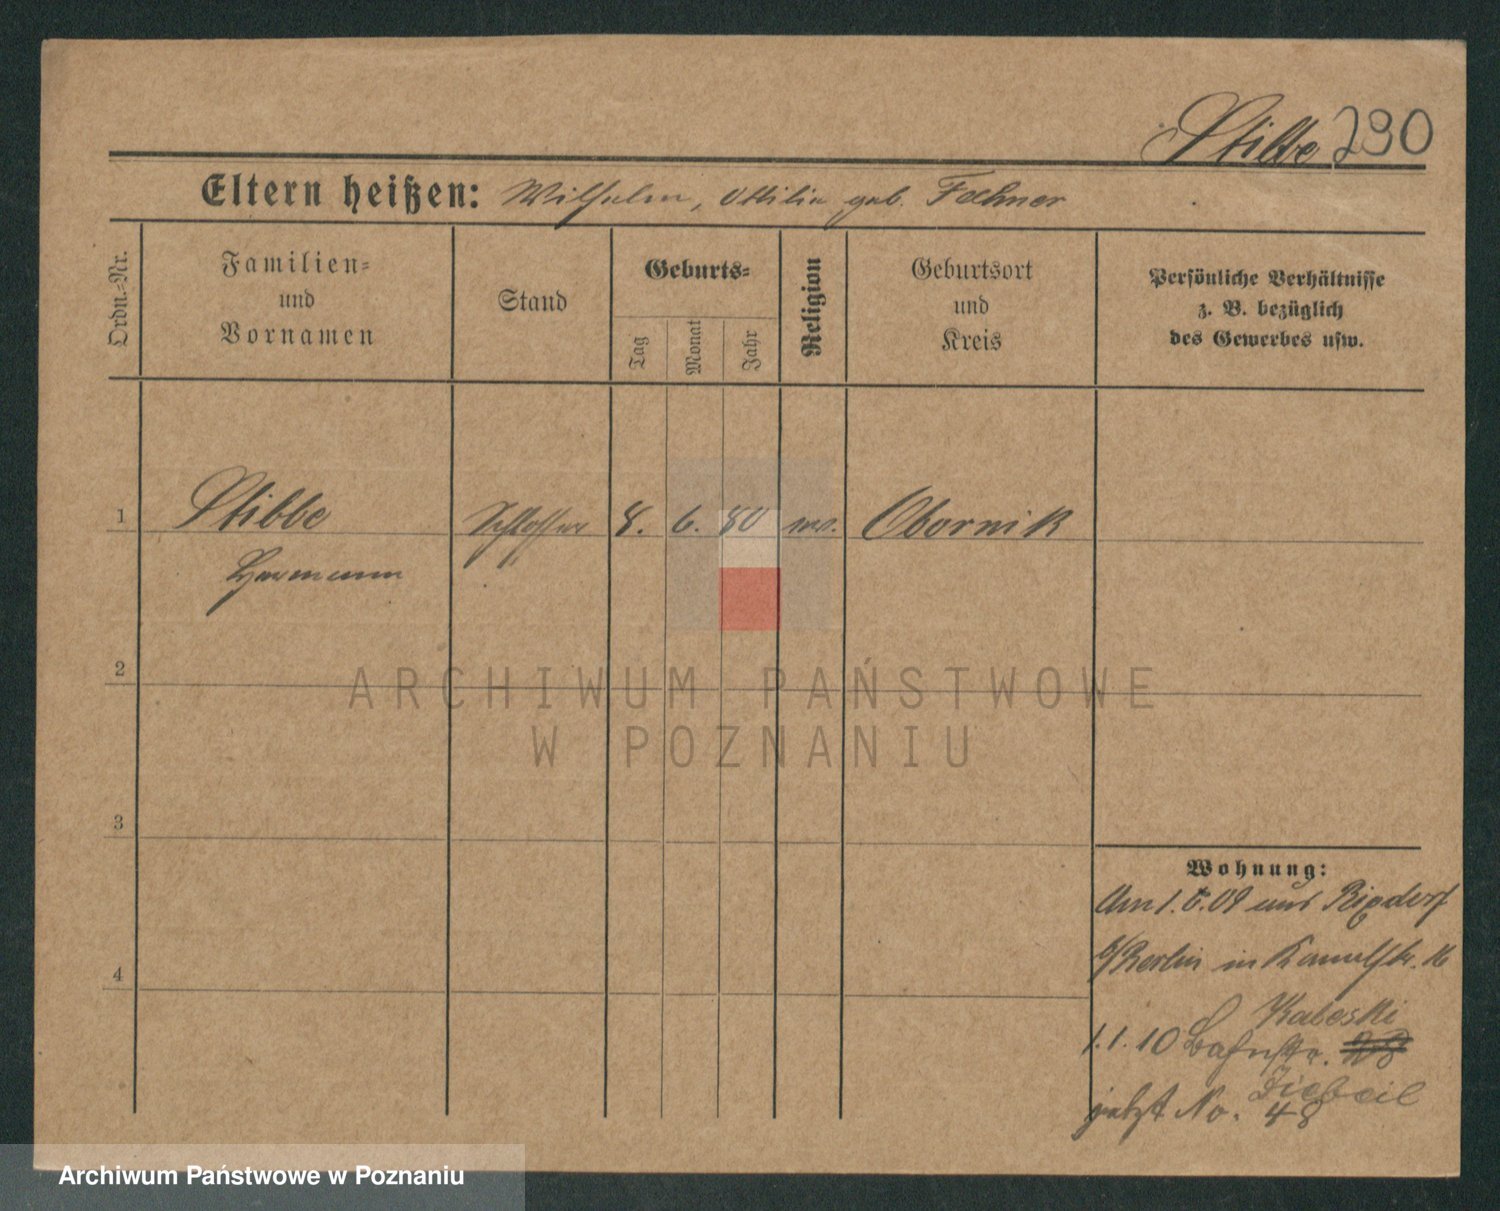 Stibbe 290
Eltern heißen: Wilhelm, Ottilie geb. Fechner
Ordn.-Nr.
Familien-
und
Vornamen
Stand
Geburts-
Tag
Monat
Jahr
Religion
Geburtsort
und
Kreis
Persönliche Verhältnisse
z. B. bezüglich
des Gewerbes usw.
1 Stibbe Schlosser 8. 6. 80 Obornik
Hermann
2
ARCHIWUM PAŃSTWOWE
W POZNANIU
3
4
Wohnung:
Am 1.5.09 aus Rixdorf
b/Berlin in Kanalstr. 16
Kaleski
1.1.10 Bahnstr.
Ziebeil
jetzt No. 48
Archiwum Państwowe w Poznaniu